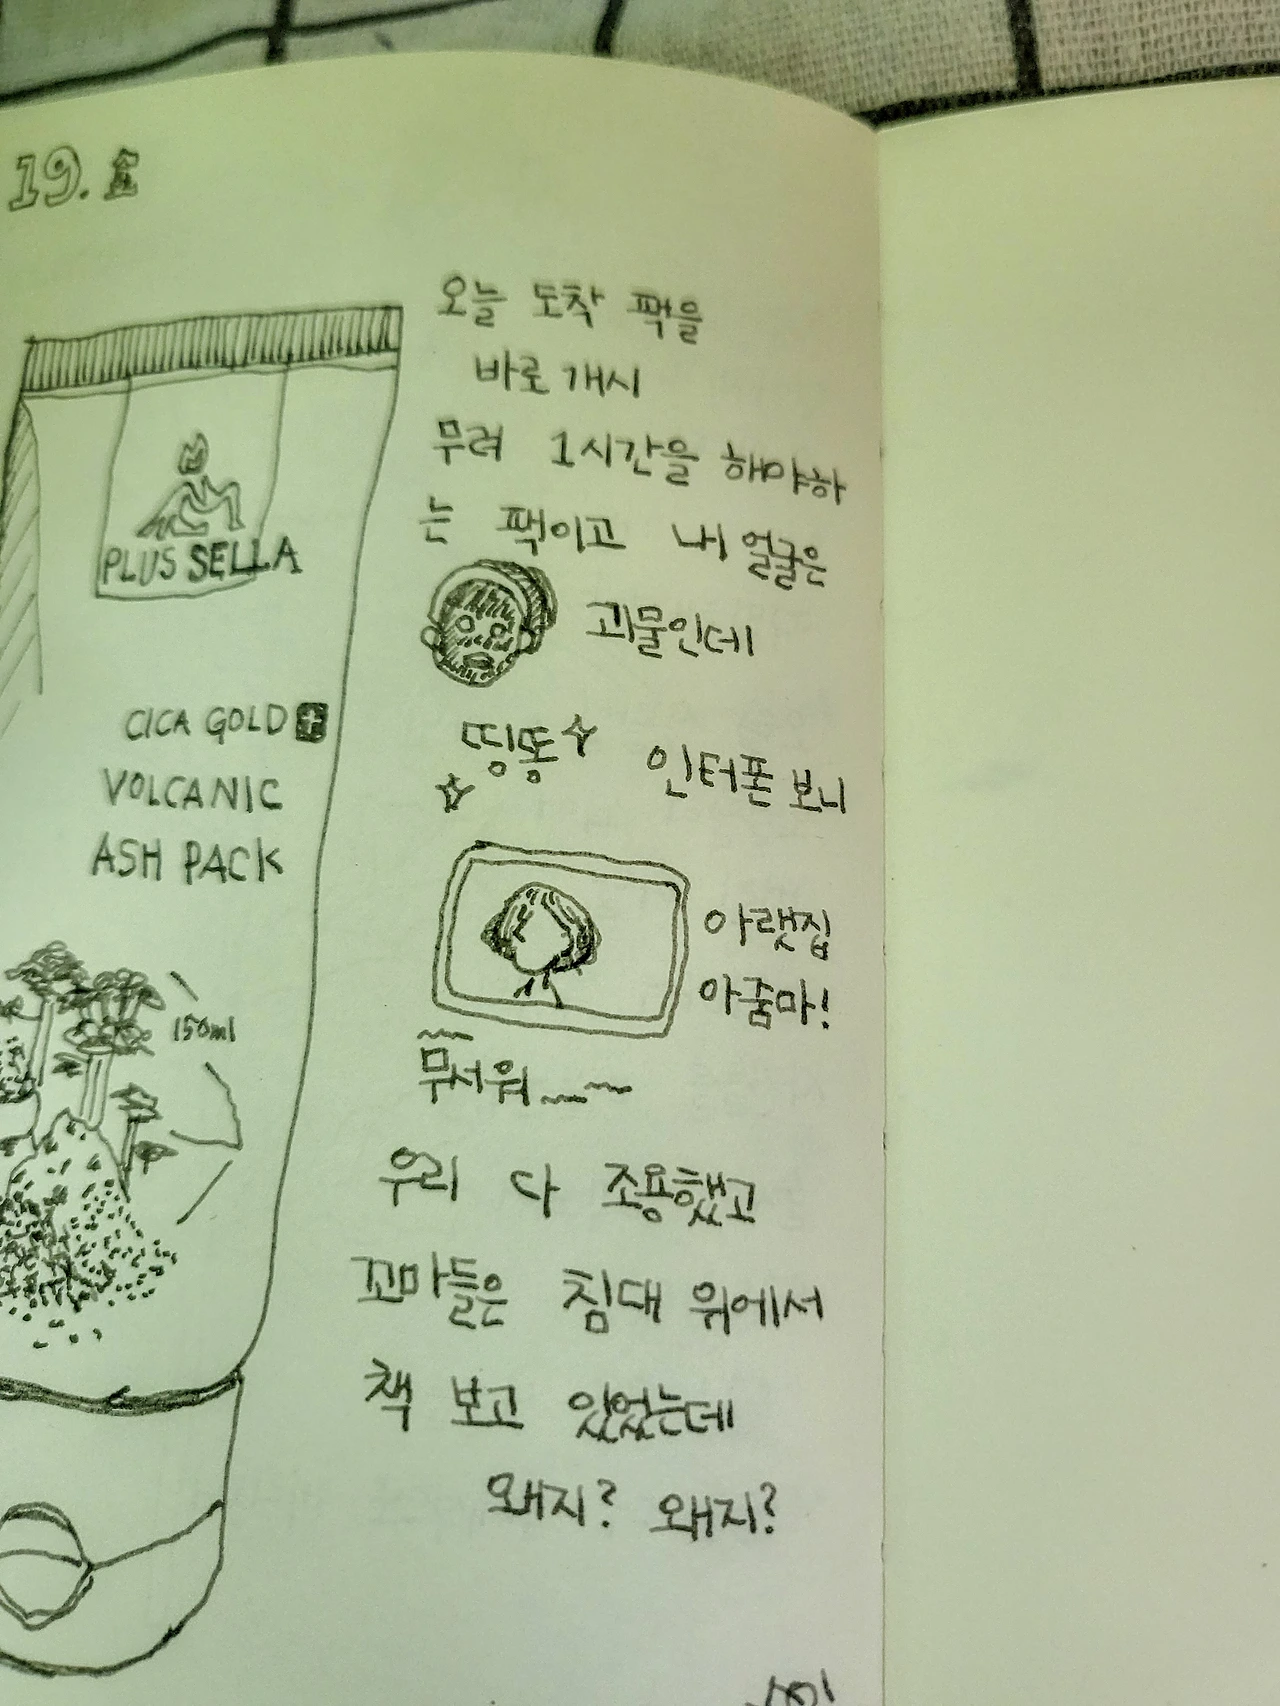 19. 金
오늘 도착 팩을
바로 개시
무려 1시간을 해야하
는 팩이고 내 얼굴은
괴물인데
띵똥 인터폰 보니
아랫집
아줌마!
무서워
우리 다 조용했고
꼬마들은 침대 위에서
책 보고 있었는데
왜지? 왜지?
PLUS SELLA
CICA GOLD
VOLCANIC
ASH PACK
150ml